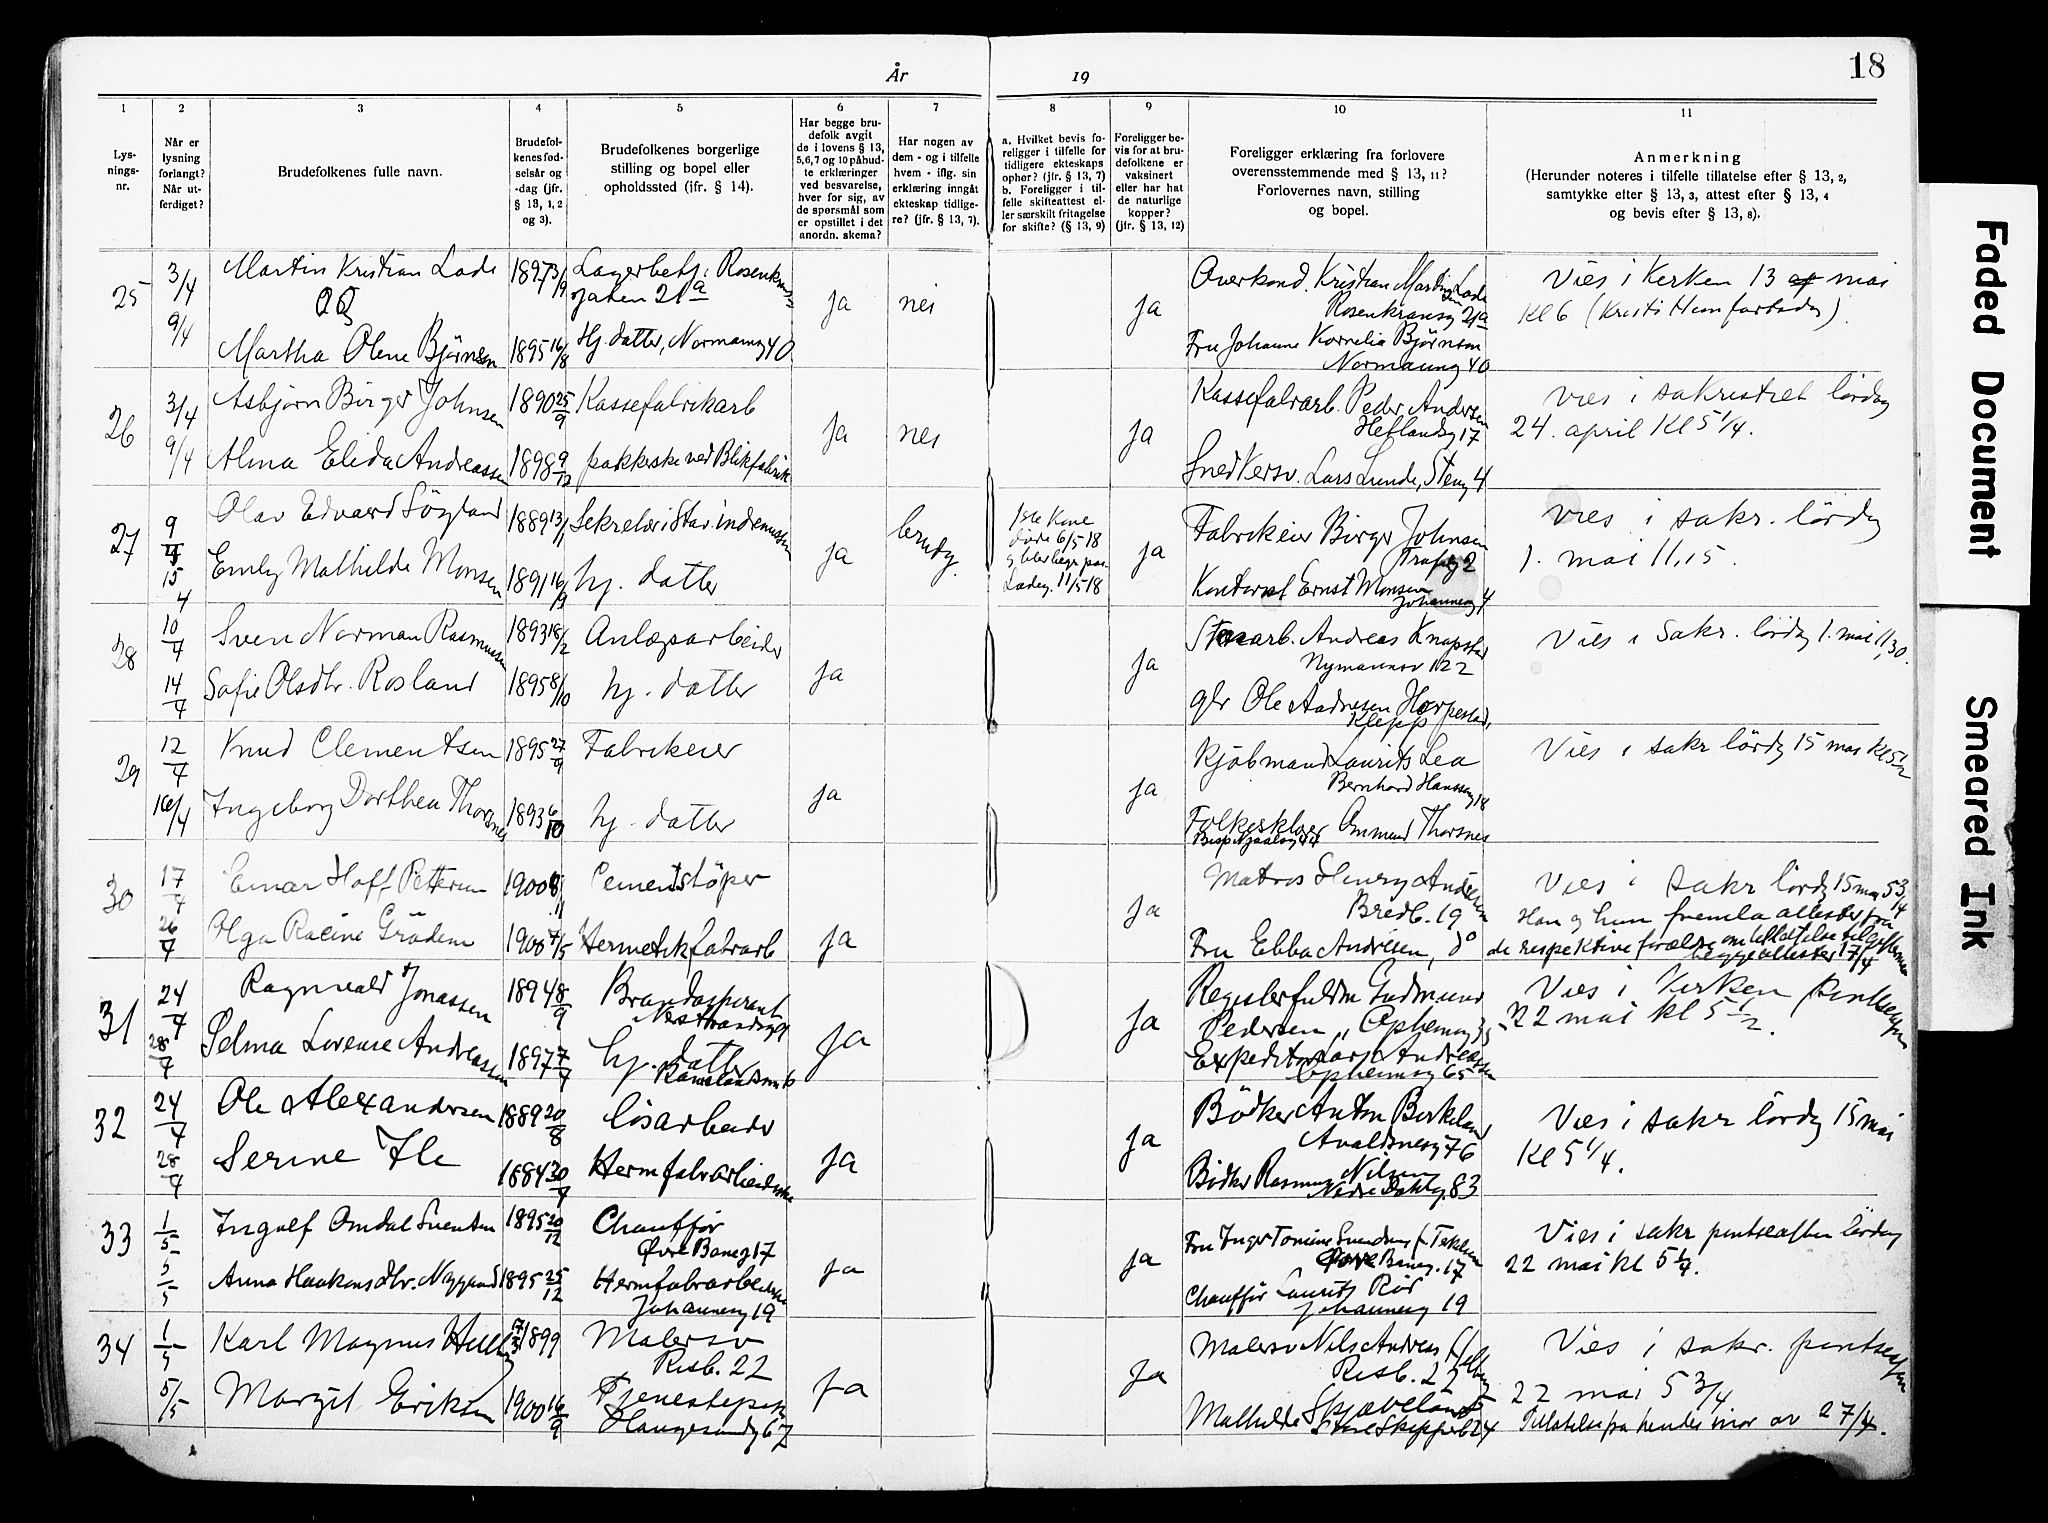 År 19
18
1 2 3 4 5 6 7 8 9 10 11
Lys-
nings-
nr.
Når er
lysning
forlangt?
Når ut-
ferdiget?
Brudefolkenes fulle navn.
Brudefol-
kenes fød-
selsår og
-dag (jfr.
§ 13, 1, 2
og 3).
Brudefolkenes borgerlige
stilling og bopel eller
opholdssted (jfr. § 14).
Har begge bru-
defolk avgit
de i lovens § 13,
5, 6, 7 og 10 påbud-
te erklæringer
ved besvarelse,
hver for sig, av
de spørsmål som
er opstillet i det
anordn. skema?
Har nogen av
dem - og i tilfelle
hvem - iflg. sin
erklæring inngått
ekteskap tidlige-
re? (jfr. § 13, 7).
a. Hvilket bevis fo-
religger i tilfelle for
tidligere ekteskaps
ophør? (jfr. § 13, 7)
b. Foreligger i til-
felle skifteattest el-
ler særskilt fritagelse
for skifte? (§ 13, 9)
Foreligger be-
vis for at bru-
defolkene er
vaksinert
eller har hat
de naturlige
kopper?
(jfr. § 13, 12)
Foreligger erklæring fra forlovere
overensstemmende med § 13, 11?
Forlovernes navn, stilling
og bopel.
Anmerkning
(Herunder noteres i tilfelle tillatelse efter § 13, 2,
samtykke efter § 13, 3, attest efter § 13, 4
og bevis efter § 13, 8).
25
3/4
9/4
Martin Kristian Lade
og
Martha Olene Bjørnsen
1897 3/9
1895 16/8
Lagerbetj. Rosenkrans
gaten 21a
Hj. datter, Normannsg 40
ja
nei
ja
Overkond. Kristian Martin Lade
Rosenkransg 21a
Fru Johanne Kornelia Bjørnson
Normannsg 40
Vies i Kerken 13 mai
Kl 6 (Kristi Himfartsdag)
26
3/4
9/4
Asbjørn Birger Johnsen
Alma Elida Andreassen
1890 25/9
1898 9/12
Kassefabrikarb
pakkerske ved Blikfabrik
ja
nei
ja
Kassefabrarb. Peder Andersen
Hetlandsg 17
Snedkersv. Lars Lunde, Steng 4
Vies i sakristiet lördag
24. april Kl 5 1/4.
27
9/4
15/4
Olav Edvard Söyland
Emly Mathilde Monsen
1889 13/1
1891 16/9
Sekretær i Stav.
hj. datter
ja
brudg.
1ste Kone
döde 6/5 18
11/5 18
ja
Fabrikeier Birger Johnsen
2
Kontorist Ernst Monsen
Johannesg 4
Vies i sakr. lördag
1. mai 11,15.
28
10/4
14/4
Sven Norman Rasmussen
Sofie Olsdtr. Rosland
1893 18/2
1895 8/10
Anlægsarbeider
hj. datter
ja
ja
Andreas Knapstad
Nymannsv 122
gbr Ole Andresen Horpestad,
Klepp
Vies i Sakr. lördag 1. mai 11,30.
29
12/4
16/4
Knud Clementsen
Ingeborg Dorthea Thorsnes
1895 27/9
1893 6/10
Fabrikeier
hj. datter
ja
ja
Kjöbmand Laurits Lea
Bernhard Hanssensg 18
Ommund Thorsnes
Vies i sakr lördag 15 mai Kl 5 1/2
30
17/4
26/4
Einar Hoff Pettersen
Olga Racine Grödem
1900 8/11
1900 4/5
Cementstöper
Hermetikfabrarb
ja
ja
Matros Henry Andresen
Bredb. 19
Fru Ebba Andresen, do
Vies i sakr lördag 15 mai 5 3/4
Han og hun fremla attester fra
de respektive forældre om tillatelse til giftermaal
begge attester 17/4
31
24/4
28/4
Ragnvald Jonassen
Selma Lovense Andreassen
1894 8/9
1897 7/4
Brandaspirant
hj. datter
ja
ja
Registerfuldm Gudmund
Pedersen
Expeditör Andreassen
65
Vies i Kirken
22 mai kl 5 1/2.
32
24/4
28/4
Ole Alexandersen
Serine Ile
1889 20/8
1884 30/4
lösarbeider
Hermfabrarbeiderske
ja
ja
Bödker Anton Birkeland
Avaldsnesg 76
Bödker Rasmus Nilsen
83
Vies i sakr lördag 15 mai
Kl 5 1/4.
33
1/5
5/5
Ingolf Omdal Svendsen
Anna Haakonsdtr. Nygaard
1895 20/12
1895 25/12
Chauffør
Øvre Baneg 17
Hermfabrarbeiderske
Johannesg 19
ja
ja
Fru Inger Tomine Svendsen
Øvre Baneg. 17
Chauffør Laurits Rör
Johannesg 19
Vies i sakr pintseaften lördag
22 mai kl 5 1/4.
34
1/5
5/5
Karl Magnus
Margit Eriksen
1899
1900 16/9
Malersv
Risb. 22
Tjenestepik
Haugesundsg 67
ja
ja
Malersv Nils Andreas
Risb. 22
Mathilde Skjæveland
24
Vies i sakr. pintseaften
22 mai 5 3/4
Tillatelse fra hendes mor av 27/4.
Faded Document
Smeared Ink